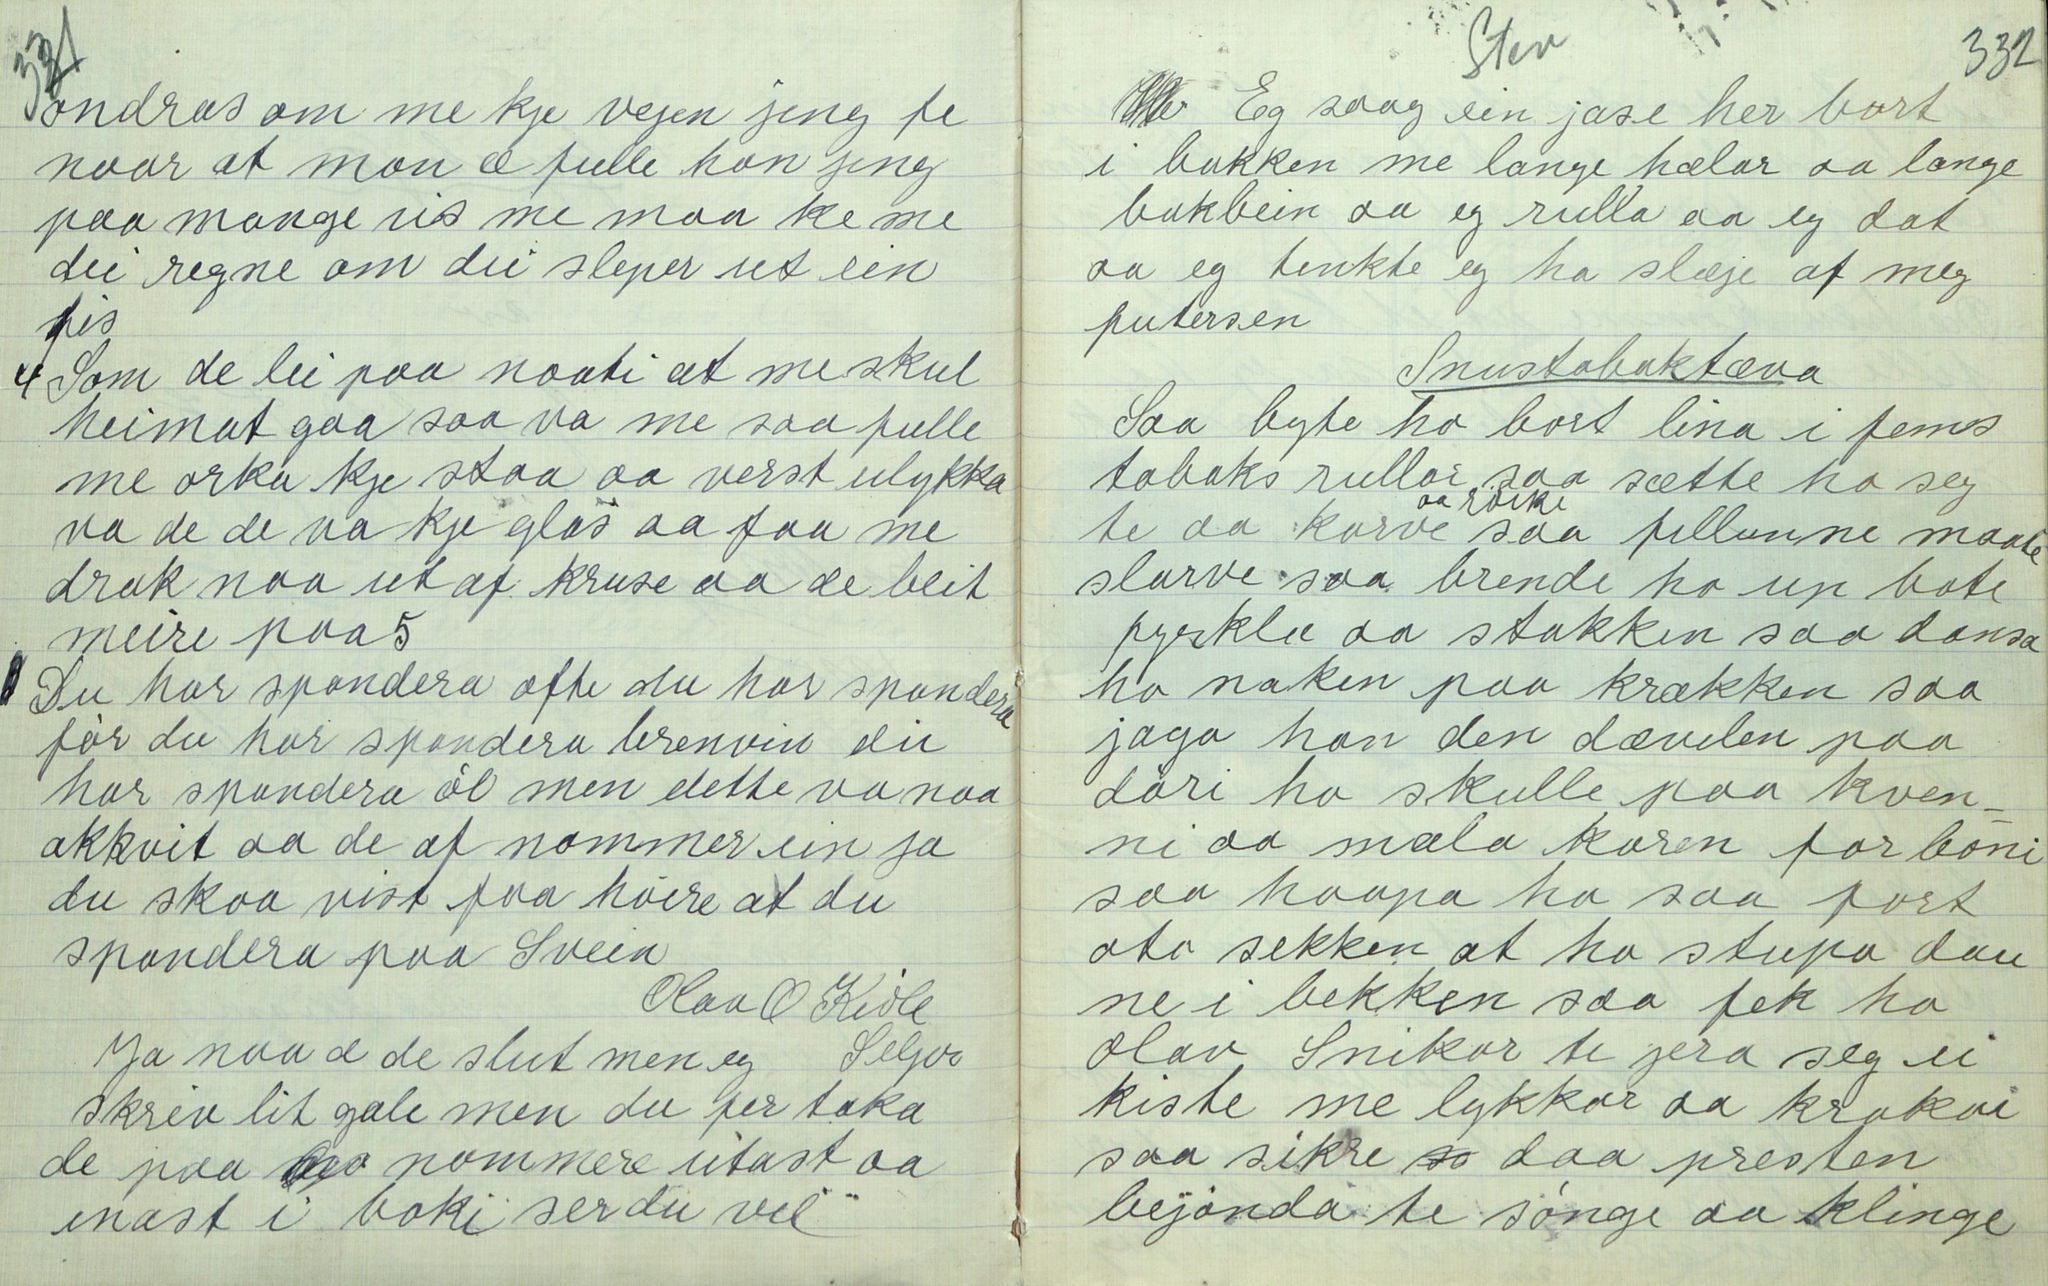 331
ondras om me kje vejen jeng fe
naar at man æ fulle han jeng
paa mange vis me maa ke me
du regne om du sleper ut ein
fis
4 Som de lei paa naati at me skul
heimat gaa saa va me saa fulle
me orka kje staa aa verst ulykka
va de de va kje glas aa faa me
drak naa ut af kruse aa de beit
meire paa 5
Du har spandera ofte du har spandera
för du har spandera brenvin du
har spandera öl men dette va naa
akkvit aa de af nommer ein ja
du skaa vist faa höire at du
spandera paa Svein
Olav O Kivle
Seljor
Ja naa æ de slut men eg
skrev lit gale men du fer taka
de paa nommere utast aa
inast i boki ser du vel
Stev
332
Eg saag ein jase her bort
i bakken me lange hælar aa lange
bakbein aa eg rulla aa eg dat
aa eg tenkte eg ha slæje af meg
putersen
Snustobaktæva
Saa byte ho bort lina i fems
tobaks rullar saa sætte ho seg
te aa karve aa röike saa fillunne maate
slarve saa brende ho up bate
pyrkle aa stakken saa dansa
ho naken paa krækken saa
jaga han den dævelen paa
döri ho skulle paa kven-
ni aa mæla karen for böni
saa haapa ho saa fort
ato sekken at ho stupa dau
ne i bekken saa fek ho
Olav Snikar te jera seg ei
kiste me lykkar aa krakar
saa sikre daa presten
bejönda te sönge aa klinge